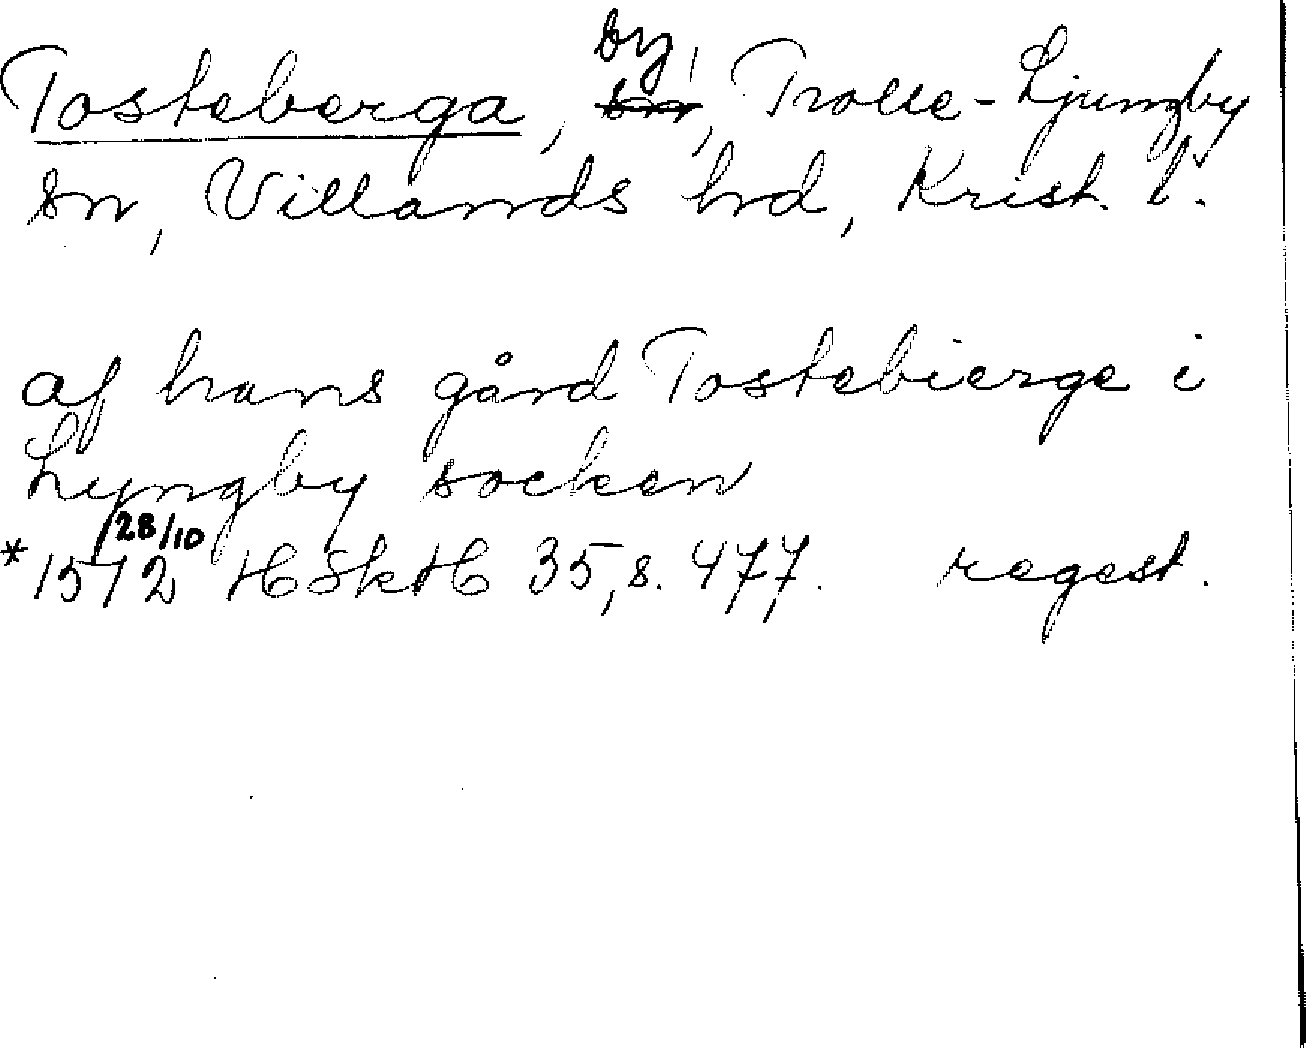 Tosteberga, by, Trolle-Ljungby
sn, Villands hd, Krist. l.
af hans gård Tostebierge i
Lyngby socken
28/10
*1572 HSkH 35, s. 477. regest.